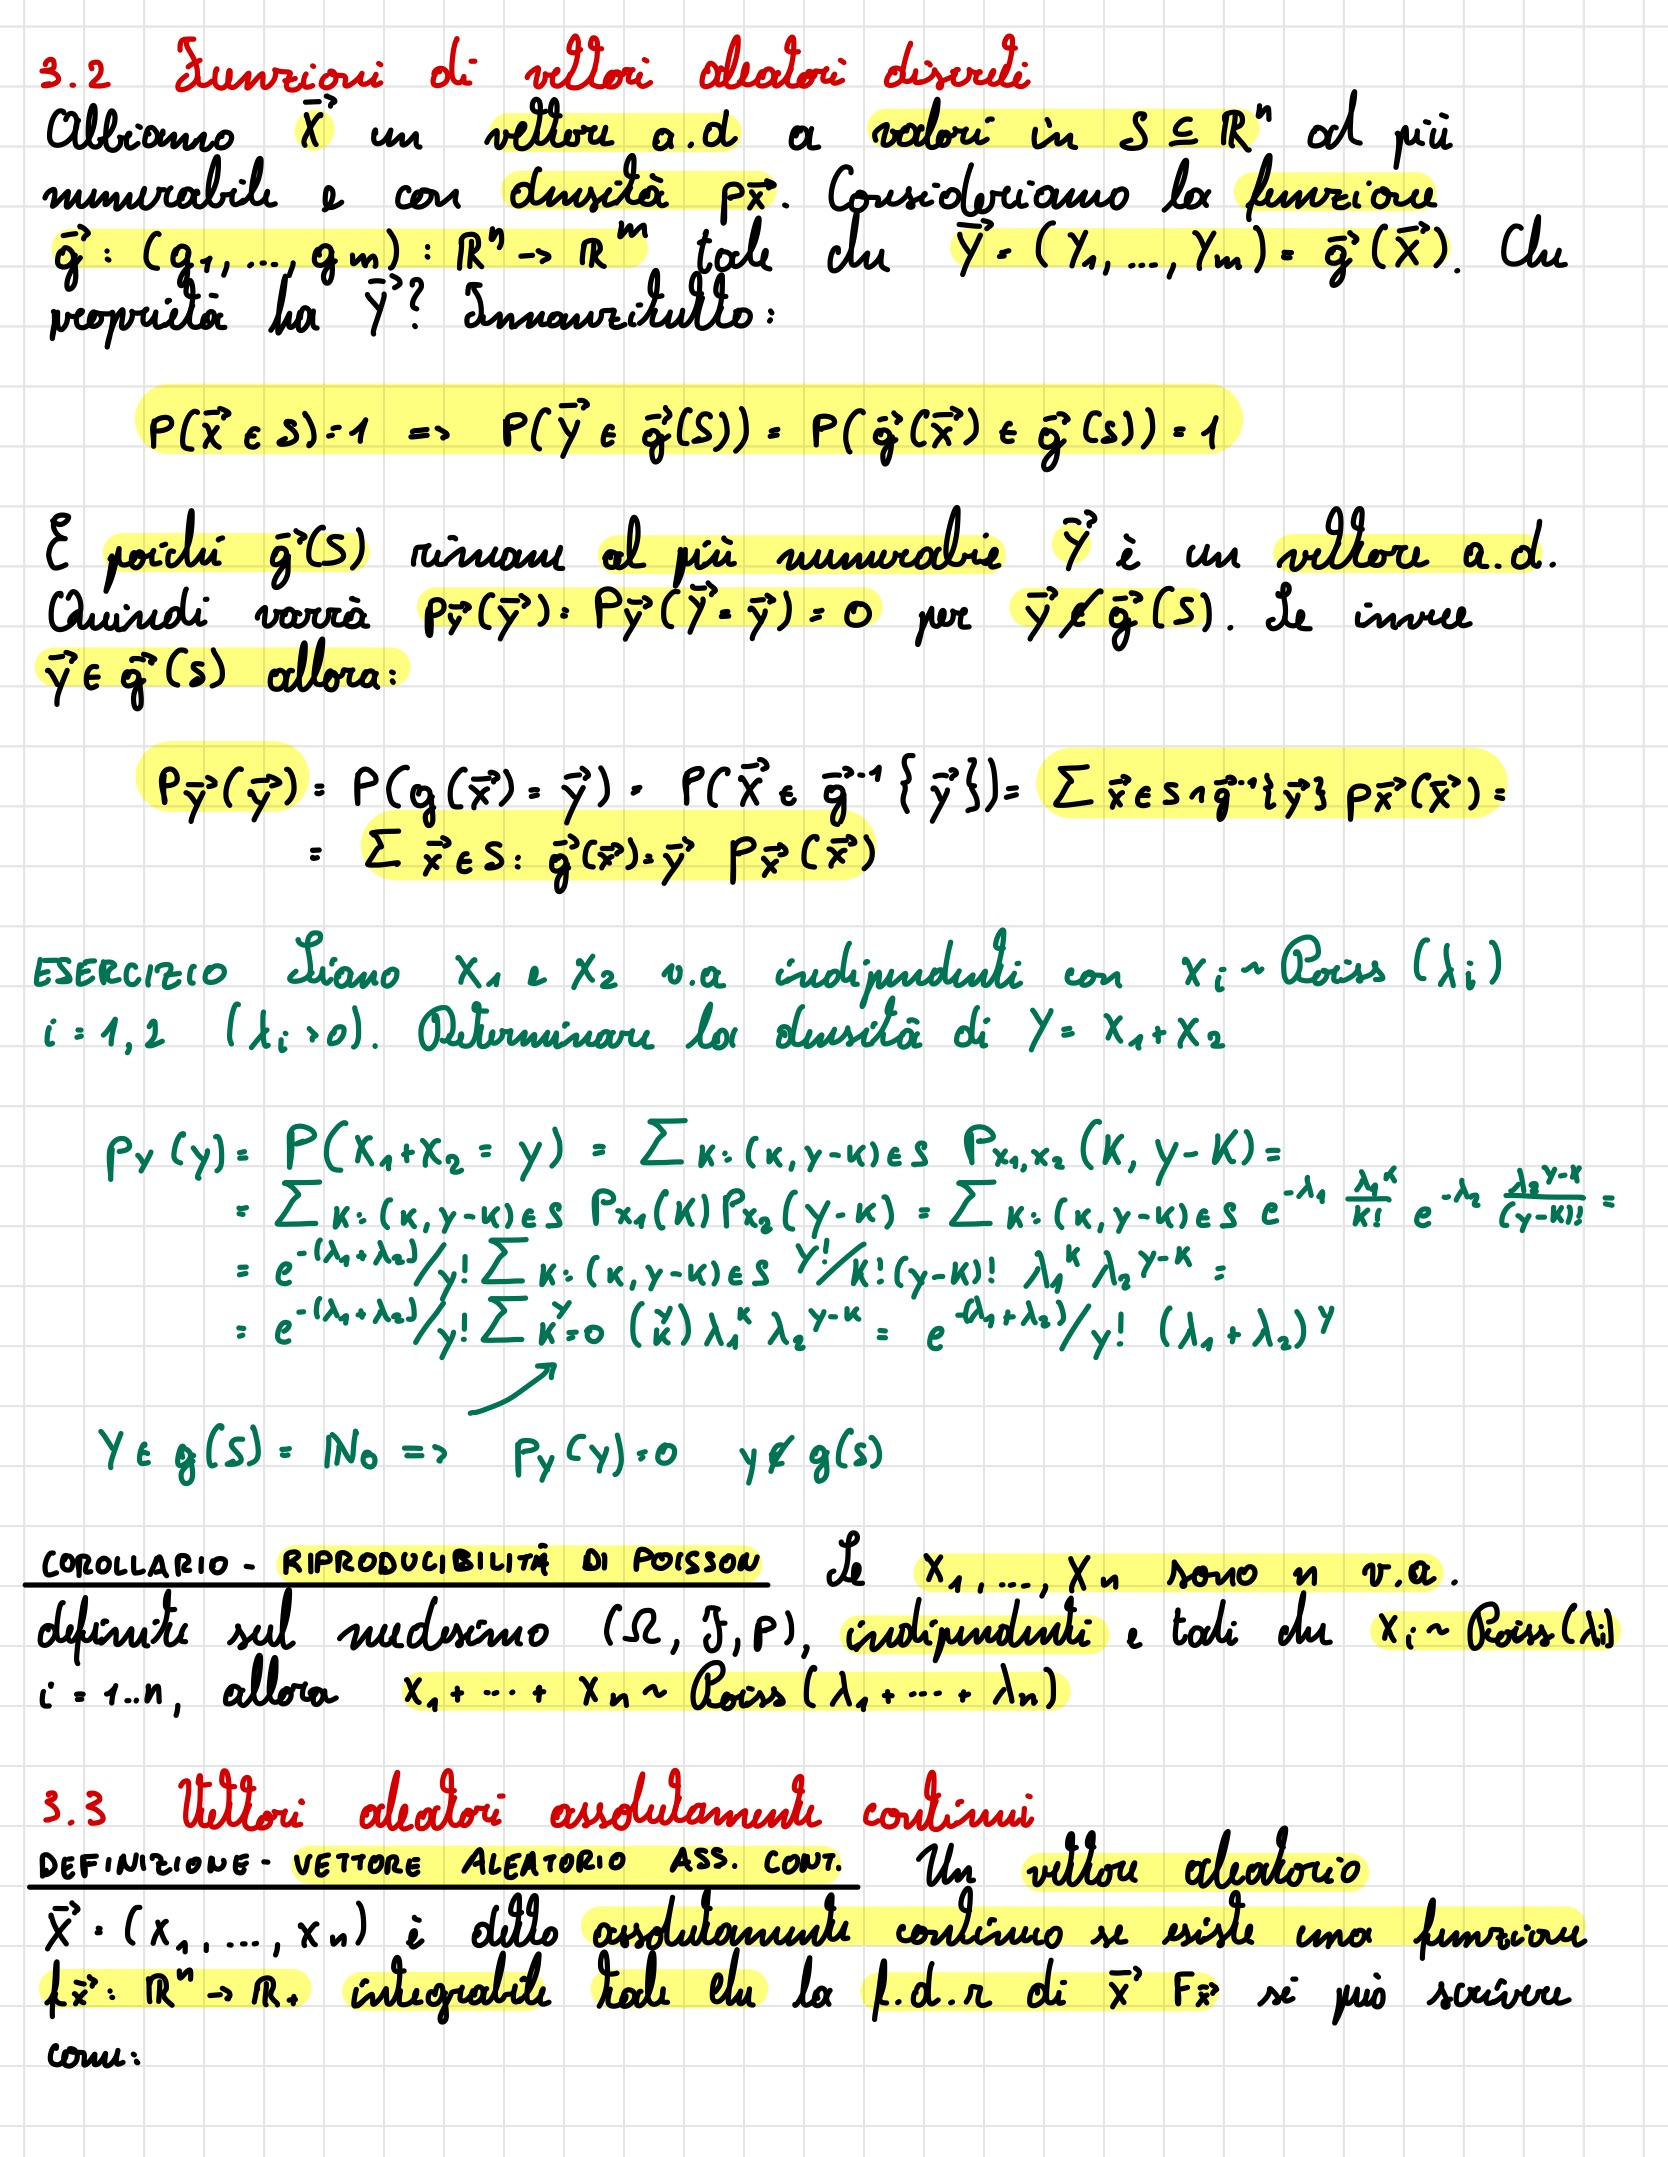 3.2 Funzioni di vettori aleatori discreti
Abbiamo X⃗ un vettore a.d a valori in S ⊆ ℝⁿ al più
numerabile e con densità pX⃗. Consideriamo la funzione
g⃗ : (g₁, ..., gm) : ℝⁿ -> ℝᵐ tale che Y⃗ = (Y₁, ..., Ym) = g⃗(X⃗). Che
proprietà ha Y⃗? Innanzitutto:
P(X⃗ ∈ S) = 1 => P(Y⃗ ∈ g⃗(S)) = P(g⃗(X⃗) ∈ g⃗(S)) = 1
E poiché g⃗(S) rimane al più numerabie Y⃗ è un vettore a.d.
Quindi varrà pY⃗(y⃗) = PY⃗(Y⃗ = y⃗) = 0 per y⃗ ∉ g⃗(S). Se invece
y⃗ ∈ g⃗(S) allora:
PY⃗(y⃗) = P(g(X⃗) = y⃗) = P(X⃗ ∈ g⃗⁻¹{y⃗}) = ∑ x⃗ ∈ S ∩ g⃗⁻¹{y⃗} pX⃗(x⃗) =
= ∑ x⃗ ∈ S : g⃗(x⃗) = y⃗ pX⃗(x⃗)
ESERCIZIO Siano X₁ e X₂ v.a indipendenti con Xi ~ Poiss (λi)
i = 1,2 (λi > 0). Determinare la densità di Y = X₁ + X₂
pY(y) = P(X₁+X₂ = y) = ∑ K : (K, y-K) ∈ S PX₁,X₂(K, y-K) =
= ∑ K : (K, y-K) ∈ S PX₁(K) PX₂(y-K) = ∑ K : (K, y-K) ∈ S e^-λ₁ λ₁^K/K! e^-λ₂ λ₂^y-K/(y-K)! =
= e^-(λ₁+λ₂)/y! ∑ K : (K, y-K) ∈ S y!/K!(y-K)! λ₁^K λ₂^y-K =
= e^-(λ₁+λ₂)/y! ∑ K=0^y (y K) λ₁^K λ₂^y-K = e^-(λ₁+λ₂)/y! (λ₁+λ₂)^y
Y ∈ g(S) = ℕ₀ => pY(y) = 0 y ∉ g(S)
COROLLARIO - RIPRODUCIBILITÀ DI POISSON Se X₁, ..., Xn sono n v.a.
definite sul medesimo (Ω, F, P), indipendenti e tali che Xi ~ Poiss(λi)
i = 1..n, allora X₁ + ... + Xn ~ Poiss (λ₁ + ... + λn)
3.3 Vettori aleatori assolutamente continui
DEFINIZIONE - VETTORE ALEATORIO ASS. CONT. Un vettore aleatorio
X⃗ = (X₁, ..., Xn) è detto assolutamente continuo se esiste una funzione
fX⃗ : ℝⁿ -> ℝ₊ integrabile tale che la f.d.r di X⃗ FX⃗ si può scrivere
come: